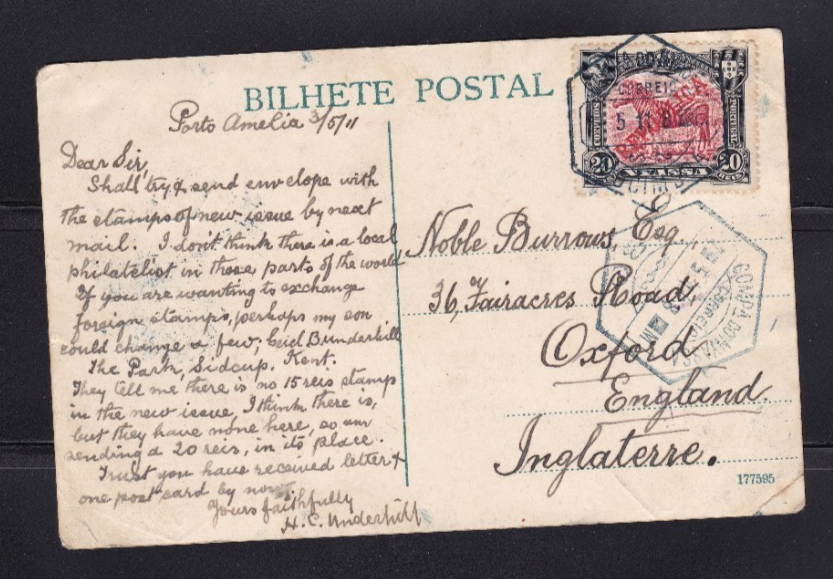 BILHETE POSTAL
Porto Amelia 3/5/11
Dear Sir,
Shall try & send envelope with
the stamps of new issue by next
mail. I don't think there is a local
philatelist in these parts of the world
If you are wanting to exchange
foreign stamps, perhaps my son
could change a few; Cecil B underhill
The Park, Sidcup. Kent.
They tell me there is no 15 reis stamp
in the new issue, I think there is,
but they have none here, so am
sending a 20 reis, in its place.
Trust you have received letter &
one post card by now.
Yours faithfully
H. C. Underhill
CORREIO
5 11
REPUBLICA
CORREIOS
PORTUGAL
20 NYASSA 20
REIS
Noble Burrows, Esq
36, Fairacres Road
Oxford
England.
Inglaterre.
COMPA. DO NYASSA
CORREIO
177595